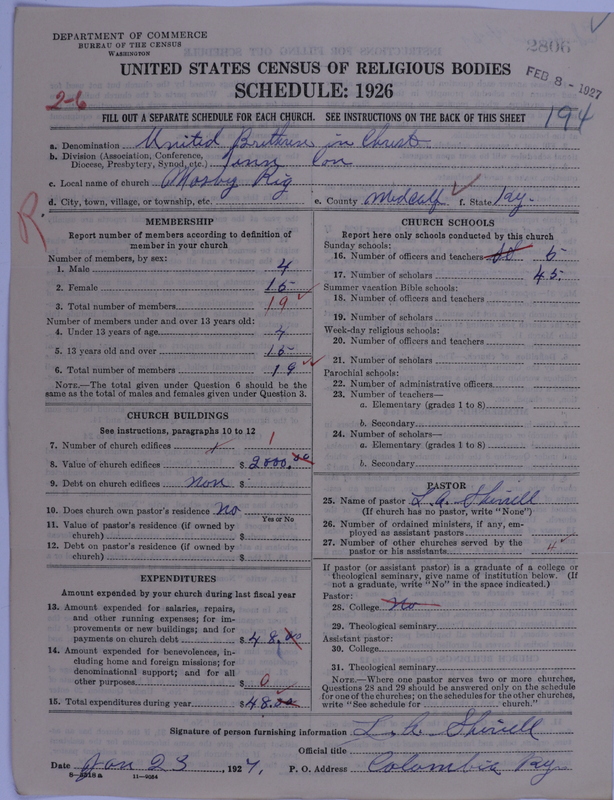 DEPARTMENT OF COMMERCE
BUREAU OF THE CENSUS
WASHINGTON
2806
FEB 8 - 1927
UNITED STATES CENSUS OF RELIGIOUS BODIES
SCHEDULE: 1926
2-6
194
FILL OUT A SEPARATE SCHEDULE FOR EACH CHURCH. SEE INSTRUCTIONS ON THE BACK OF THIS SHEET
a. Denomination United Brethren in Christ
b. Division (Association, Conference,
Diocese, Presbytery, Synod, etc.) Tenn Con
c. Local name of church Mosby Rig
d. City, town, village, or township, etc.
e. County Medcalf f. State Ky.
R
MEMBERSHIP
Report number of members according to definition of
member in your church
Number of members, by sex:
1. Male 4
2. Female 15
3. Total number of members 19
Number of members under and over 13 years old:
4. Under 13 years of age 4
5. 13 years old and over 15
6. Total number of members 19
NOTE.—The total given under Question 6 should be the
same as the total of males and females given under Question 3.
CHURCH BUILDINGS
See instructions, paragraphs 10 to 12
7. Number of church edifices 1 1
8. Value of church edifices $ 2000.00
9. Debt on church edifices non $
10. Does church own pastor's residence? no
Yes or No
11. Value of pastor's residence (if owned by
church) $
12. Debt on pastor's residence (if owned by
church) $
EXPENDITURES
Amount expended by your church during last fiscal year
13. Amount expended for salaries, repairs,
and other running expenses; for im-
provements or new buildings; and for
payments on church debt $ 48.00
14. Amount expended for benevolences, in-
cluding home and foreign missions; for
denominational support; and for all
other purposes $ 0
15. Total expenditures during year $ 48.00
CHURCH SCHOOLS
Report here only schools conducted by this church
Sunday schools:
16. Number of officers and teachers 5
17. Number of scholars 45
Summer vacation Bible schools:
18. Number of officers and teachers
19. Number of scholars
Week-day religious schools:
20. Number of officers and teachers
21. Number of scholars
Parochial schools:
22. Number of administrative officers
23. Number of teachers—
a. Elementary (grades 1 to 8)
b. Secondary
24. Number of scholars—
a. Elementary (grades 1 to 8)
b. Secondary
PASTOR
25. Name of pastor L. A. Shirrell
(If church has no pastor, write "None")
26. Number of ordained ministers, if any, em-
ployed as assistant pastors
27. Number of other churches served by the
pastor or his assistants 4
If pastor (or assistant pastor) is a graduate of a college or
theological seminary, give name of institution below. (If
not a graduate, write "No" in the space indicated.)
Pastor:
28. College No
29. Theological seminary
Assistant pastor:
30. College
31. Theological seminary
NOTE.—Where one pastor serves two or more churches,
Questions 28 and 29 should be answered only on the schedule
for one of the churches; on the schedules for the other churches,
write "See schedule for church."
Signature of person furnishing information L. A. Shirrell
Official title
Date Jan 23, 1927. P. O. Address Columbia Ky
8—5318 a 11—9084